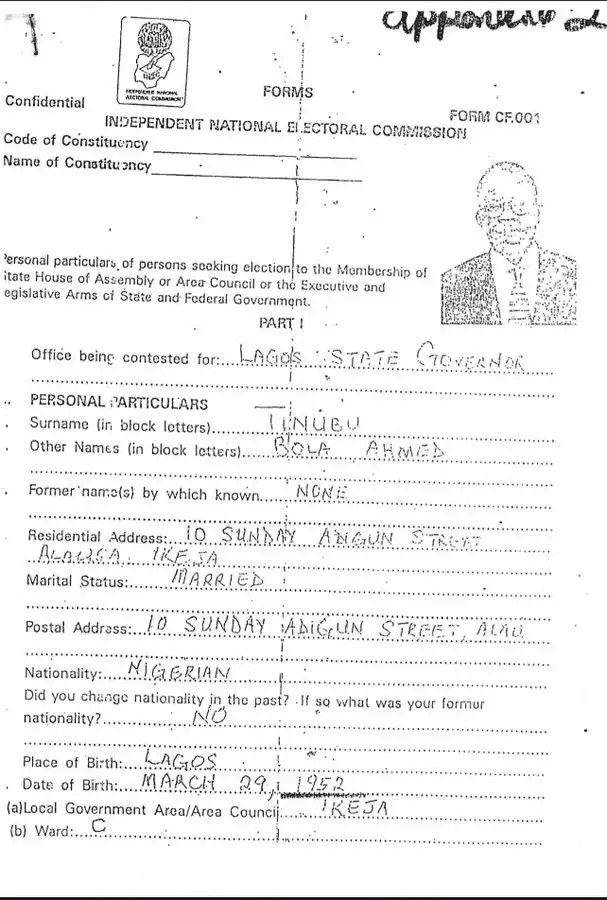 Appendix 2
INDEPENDENT NATIONAL
ELECTORAL COMMISSION
Confidential
FORMS
FORM CF.001
INDEPENDENT NATIONAL ELECTORAL COMMISSION
Code of Constituency
Name of Constituency
Personal particulars of persons seeking election to the Membership of
State House of Assembly or Area Council or the Executive and
Legislative Arms of State and Federal Government.
PART I
Office being contested for: LAGOS STATE GOVERNOR
PERSONAL PARTICULARS
Surname (in block letters) TINUBU
Other Names (in block letters) BOLA AHMED
Former name(s) by which known NONE
Residential Address: 10 SUNDAY ADIGUN STREET
ALAUSA, IKEJA
Marital Status: MARRIED
Postal Address: 10 SUNDAY ADIGUN STREET, ALAU
Nationality: NIGERIAN
Did you change nationality in the past? If so what was your former
nationality? NO
Place of Birth: LAGOS
Date of Birth: MARCH 29, 1952
(a)Local Government Area/Area Council IKEJA
(b) Ward: C